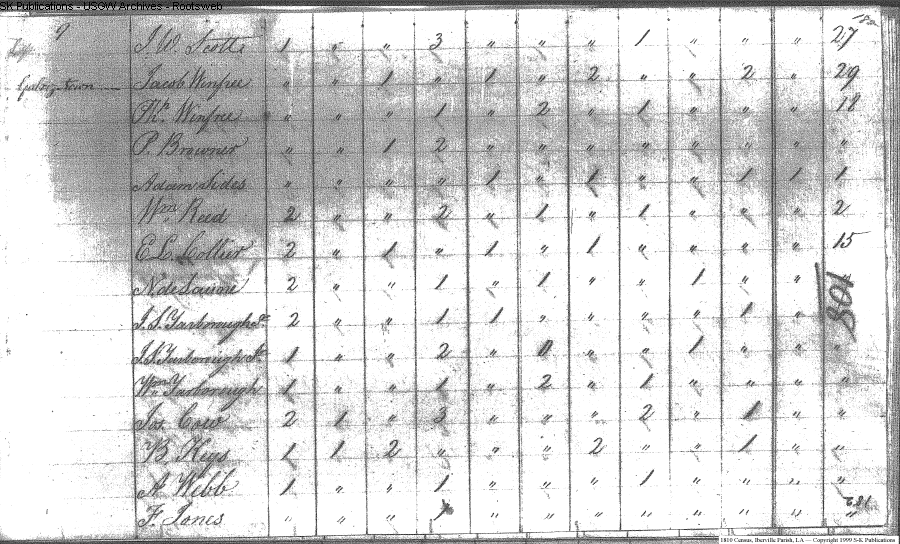 SK Publications - USGW Archives - Rootsweb
9 J. W. Scotts 1 " " 3 " " " 1 " " " 27
Jacob Winfree " " 1 " 1 " 2 " " 2 " 29
Php. Winfree " " " 1 " 2 " 1 " " " 18
P. Browner " " 1 2 " " " " " " " "
Adam Sides " " " " 1 " 1 " " 1 1 1
Wm Reed 2 " " 2 " 1 " 1 " " " 2
E. L. Collier 2 " 1 " 1 " 1 " " " " 15
2 " " 1 " 1 " " 1 " " "
801
J. S. Yarborough Sr 2 " " 1 1 " " " " 1 "
J. S. Yarborough Jr 1 " " 2 " " " 1 " " "
Wm Yarborough 1 " " 1 " 2 " 1 " " " "
Jos. Crow 2 1 " 3 " " " 2 " 1 " "
B. Keys 1 1 2 " " " 2 " " 1 " "
A. Webb 1 " " 1 " " " 1 " " " "
F. Jones " " " 1 " " " " " " " "
1810 Census, Iberville Parish, LA — Copyright 1999 S-K Publications